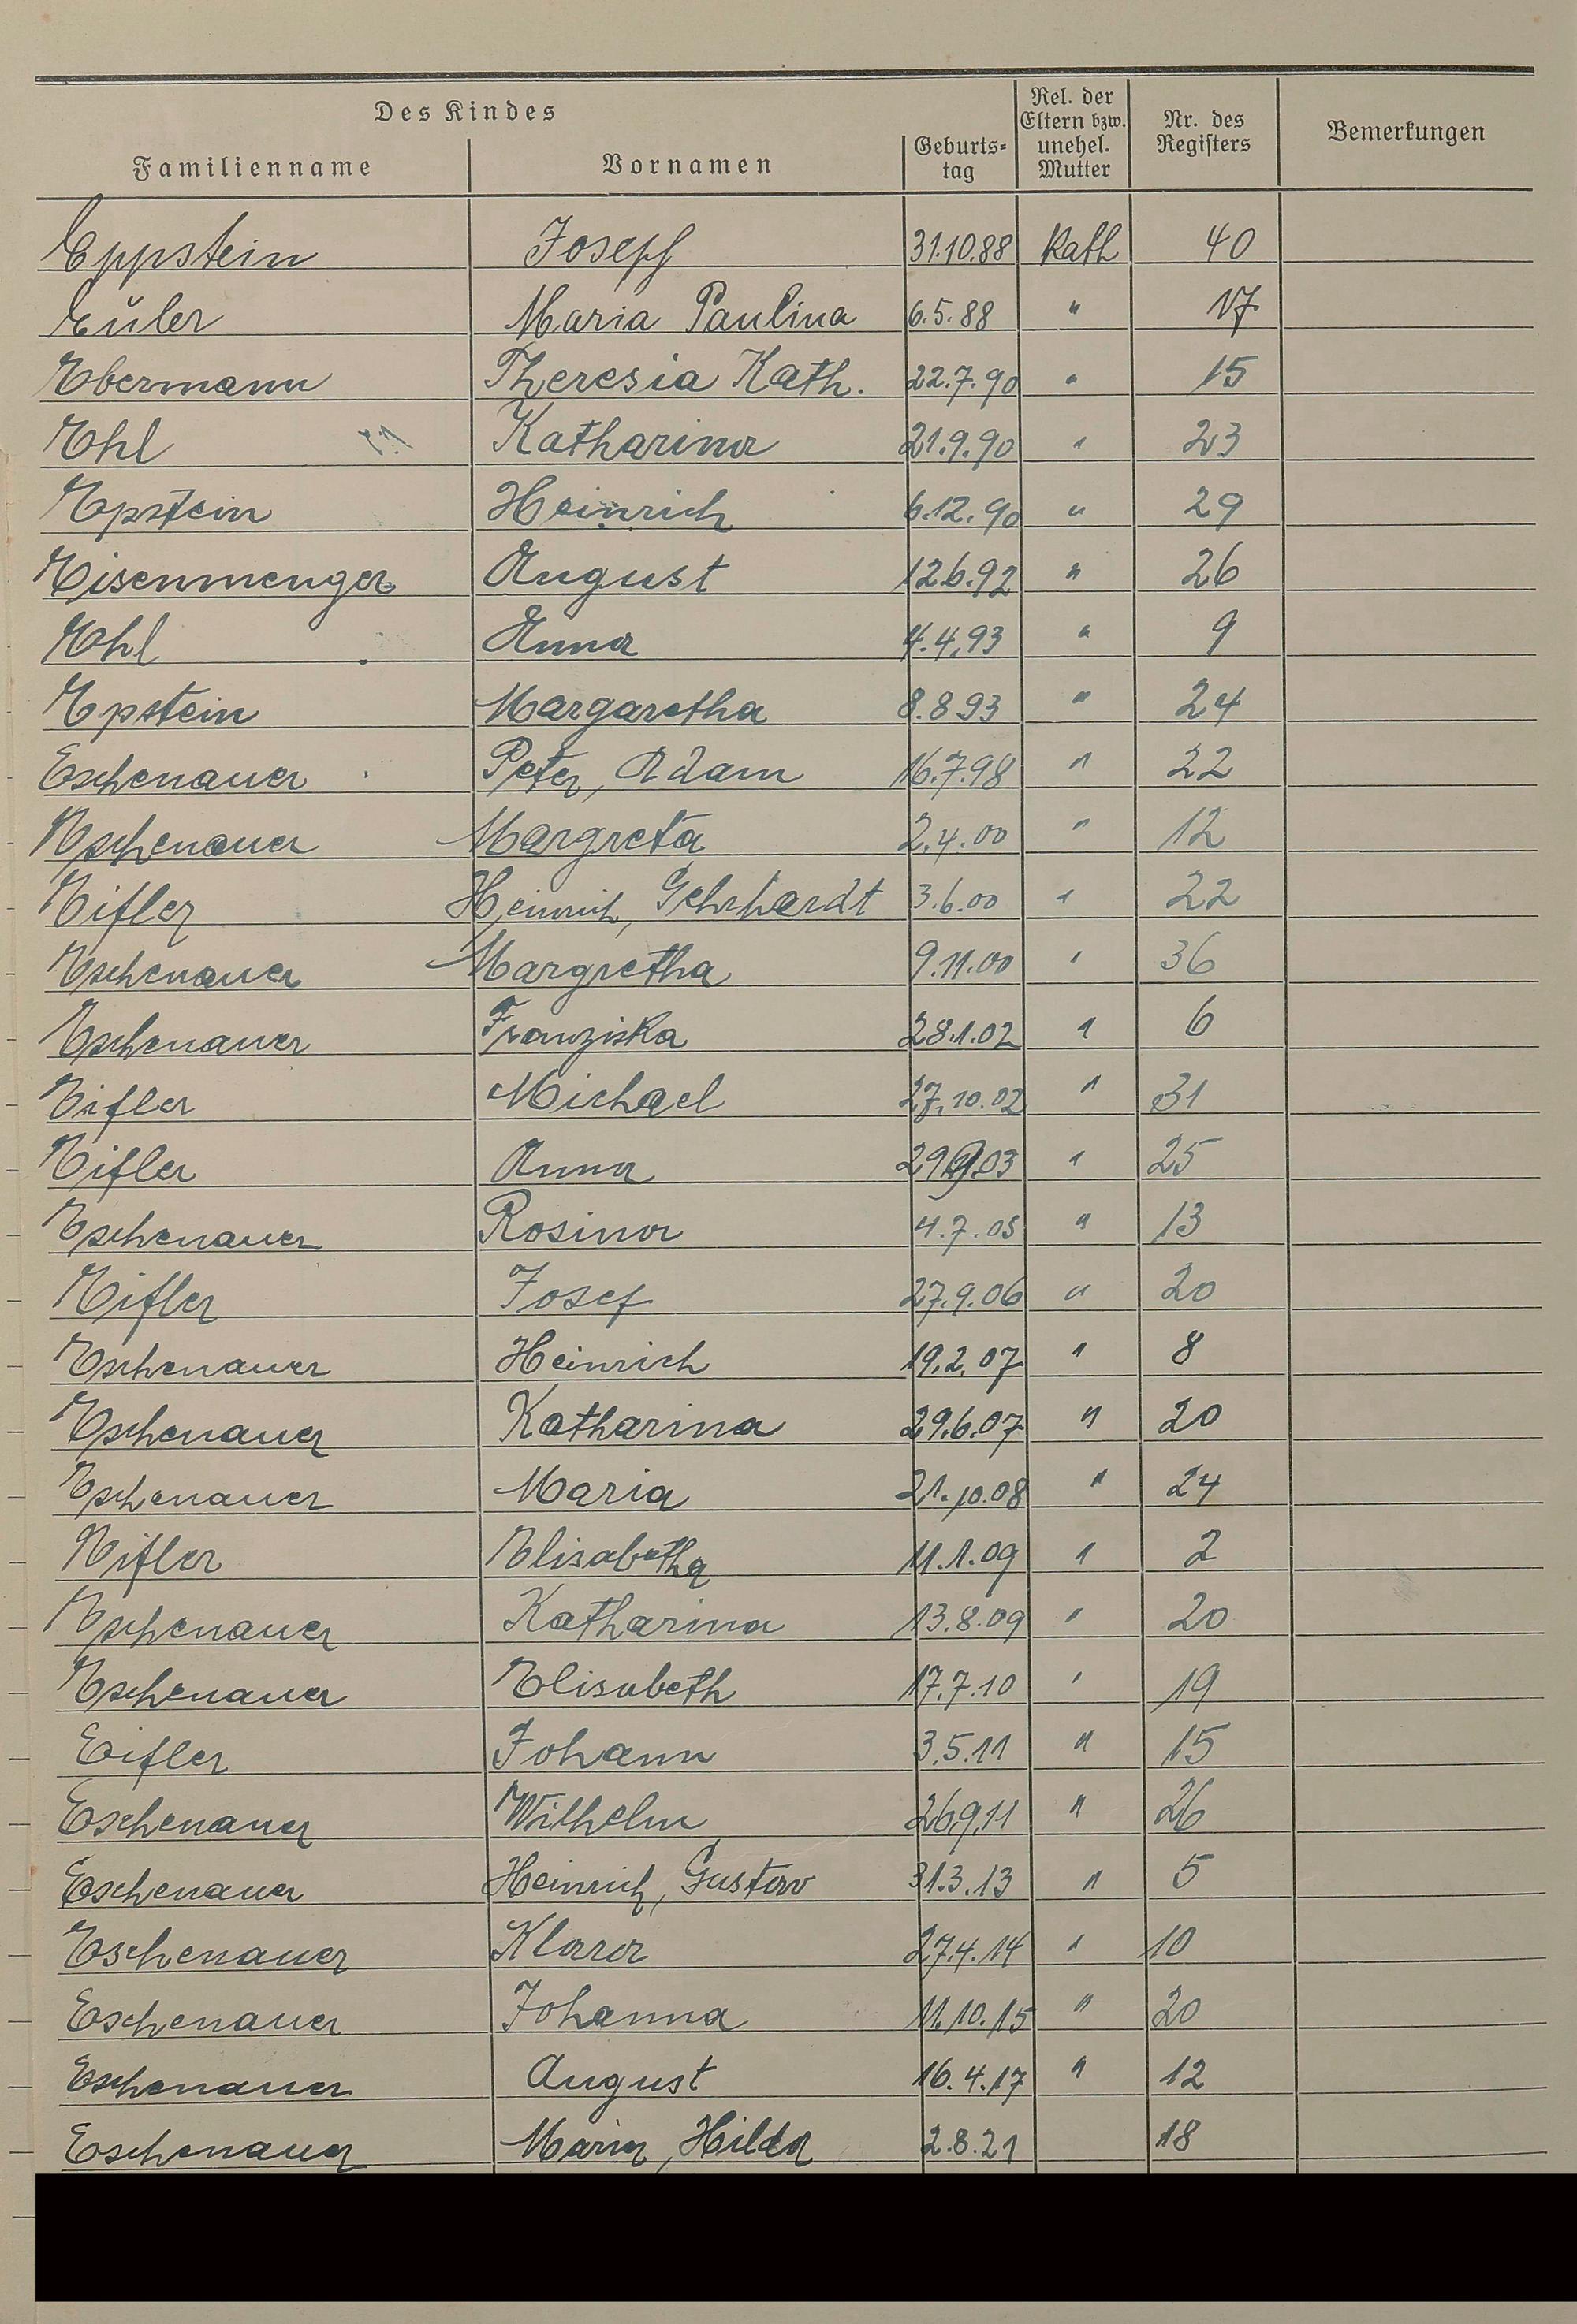 Des Kindes
Familienname Vornamen Geburts=tag Rel. der Eltern bzw. unehel. Mutter Nr. des Registers Bemerkungen
Eppstein Joseph 31.10.88 Kath 40
Euler Maria Paulina 6.5.88 " 17
Ebermann Theresia Kath. 22.7.90 " 15
Ehl Katharina 21.9.90 " 23
Epstein Heinrich 6.12.90 " 29
Eisenmenger August 12.6.92 " 26
Ehl Anna 4.4.93 " 9
Epstein Margaretha 8.8.93 " 24
Eschenauer Peter, Adam 16.7.98 " 22
Eschenauer Margreta 2.4.00 " 12
Eifler Heinrich, Gehrhardt 3.6.00 " 22
Eschenauer Margretha 9.11.00 " 36
Eschenauer Franziska 28.1.02 " 6
Eifler Michael 27.10.02 " 31
Eifler Anna 29.9.03 " 25
Eschenauer Rosina 4.7.05 " 13
Eifler Josef 27.9.06 " 20
Eschenauer Heinrich 19.2.07 " 8
Eschenauer Katharina 29.6.07 " 20
Eschenauer Maria 21.10.08 " 24
Eifler Elisabetha 11.1.09 " 2
Eschenauer Katharina 13.8.09 " 20
Eschenauer Elisabeth 17.7.10 " 19
Eifler Johann 3.5.11 " 15
Eschenauer Wilhelm 26.9.11 " 26
Eschenauer Heinrich, Gustav 31.3.13 " 5
Eschenauer Klara 27.4.14 " 10
Eschenauer Johanna 11.10.15 " 20
Eschenauer August 16.4.17 " 12
Eschenauer Maria, Hilda 2.8.21 18